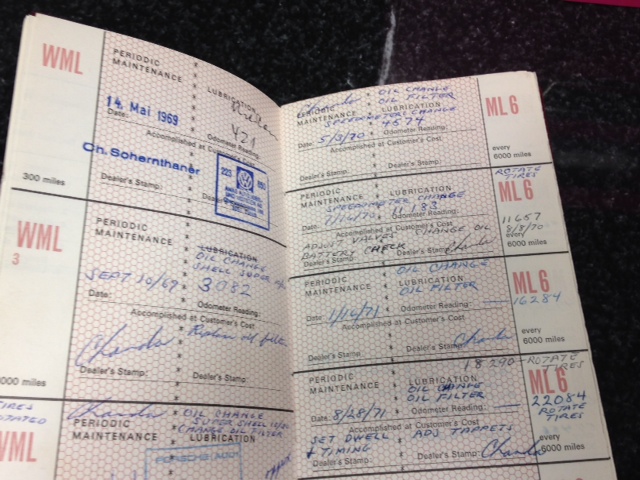 WML
PERIODIC
MAINTENANCE
LUBRICATION
14. Mai 1969
421
Date:
Odometer Reading:
Accomplished at Customer's
Ch. Sohernthaner
300 miles
Dealer's Stamp:
WML
3
PERIODIC
MAINTENANCE
LUBRICATION
OIL CHANGE
SHELL SUPER
SEPT 30/69
3082
Date:
Odometer Reading:
Accomplished at Customer's Cost
oil filter
000 miles
Dealer's Stamp:
Dealer's Stamp:
ROTATED
WML
OIL CHANGE
SUPER SHELL
PERIODIC
CHANGE OIL FILTER
MAINTENANCE
LUBRICATION
PORSCHE AUDI
OIL CHANGE
PERIODIC
OIL FILTER
MAINTENANCE
LUBRICATION
SPEEDOMETER CHANGE
4574
Date: 5/3/70
Odometer Reading:
Accomplished at Customer's Cost
Dealer's Stamp:
Dealer's Stamp:
ML 6
every
6000 miles
PERIODIC
MAINTENANCE
LUBRICATION
SPEEDOMETER CHANGE
7/16/70
Date:
Odometer Reading:
Accomplished at Customer's Cost
ADJUST VALVES
CHANGE OIL
BATTERY CHECK
Dealer's Stamp:
Dealer's Stamp:
ROTATE
TIRES
ML 6
11657
8/8/70
every
6000 miles
PERIODIC
MAINTENANCE
OIL CHANGE
LUBRICATION
OIL FILTER
Date: 1/16/71
Odometer Reading:
16284
Accomplished at Customer's Cost
Dealer's Stamp:
Dealer's Stamp:
ML 6
every
6000 miles
18290 - ROTATE
TIRES
PERIODIC
MAINTENANCE
LUBRICATION
OIL CHANGE
OIL FILTER
Date: 8/28/71
Odometer Reading:
Accomplished at Customer's Cost
SET DWELL
+ TIMING
ADJ TAPPETS
Dealer's Stamp:
ML 6
22084
ROTATE
TIRES
every
6000 miles